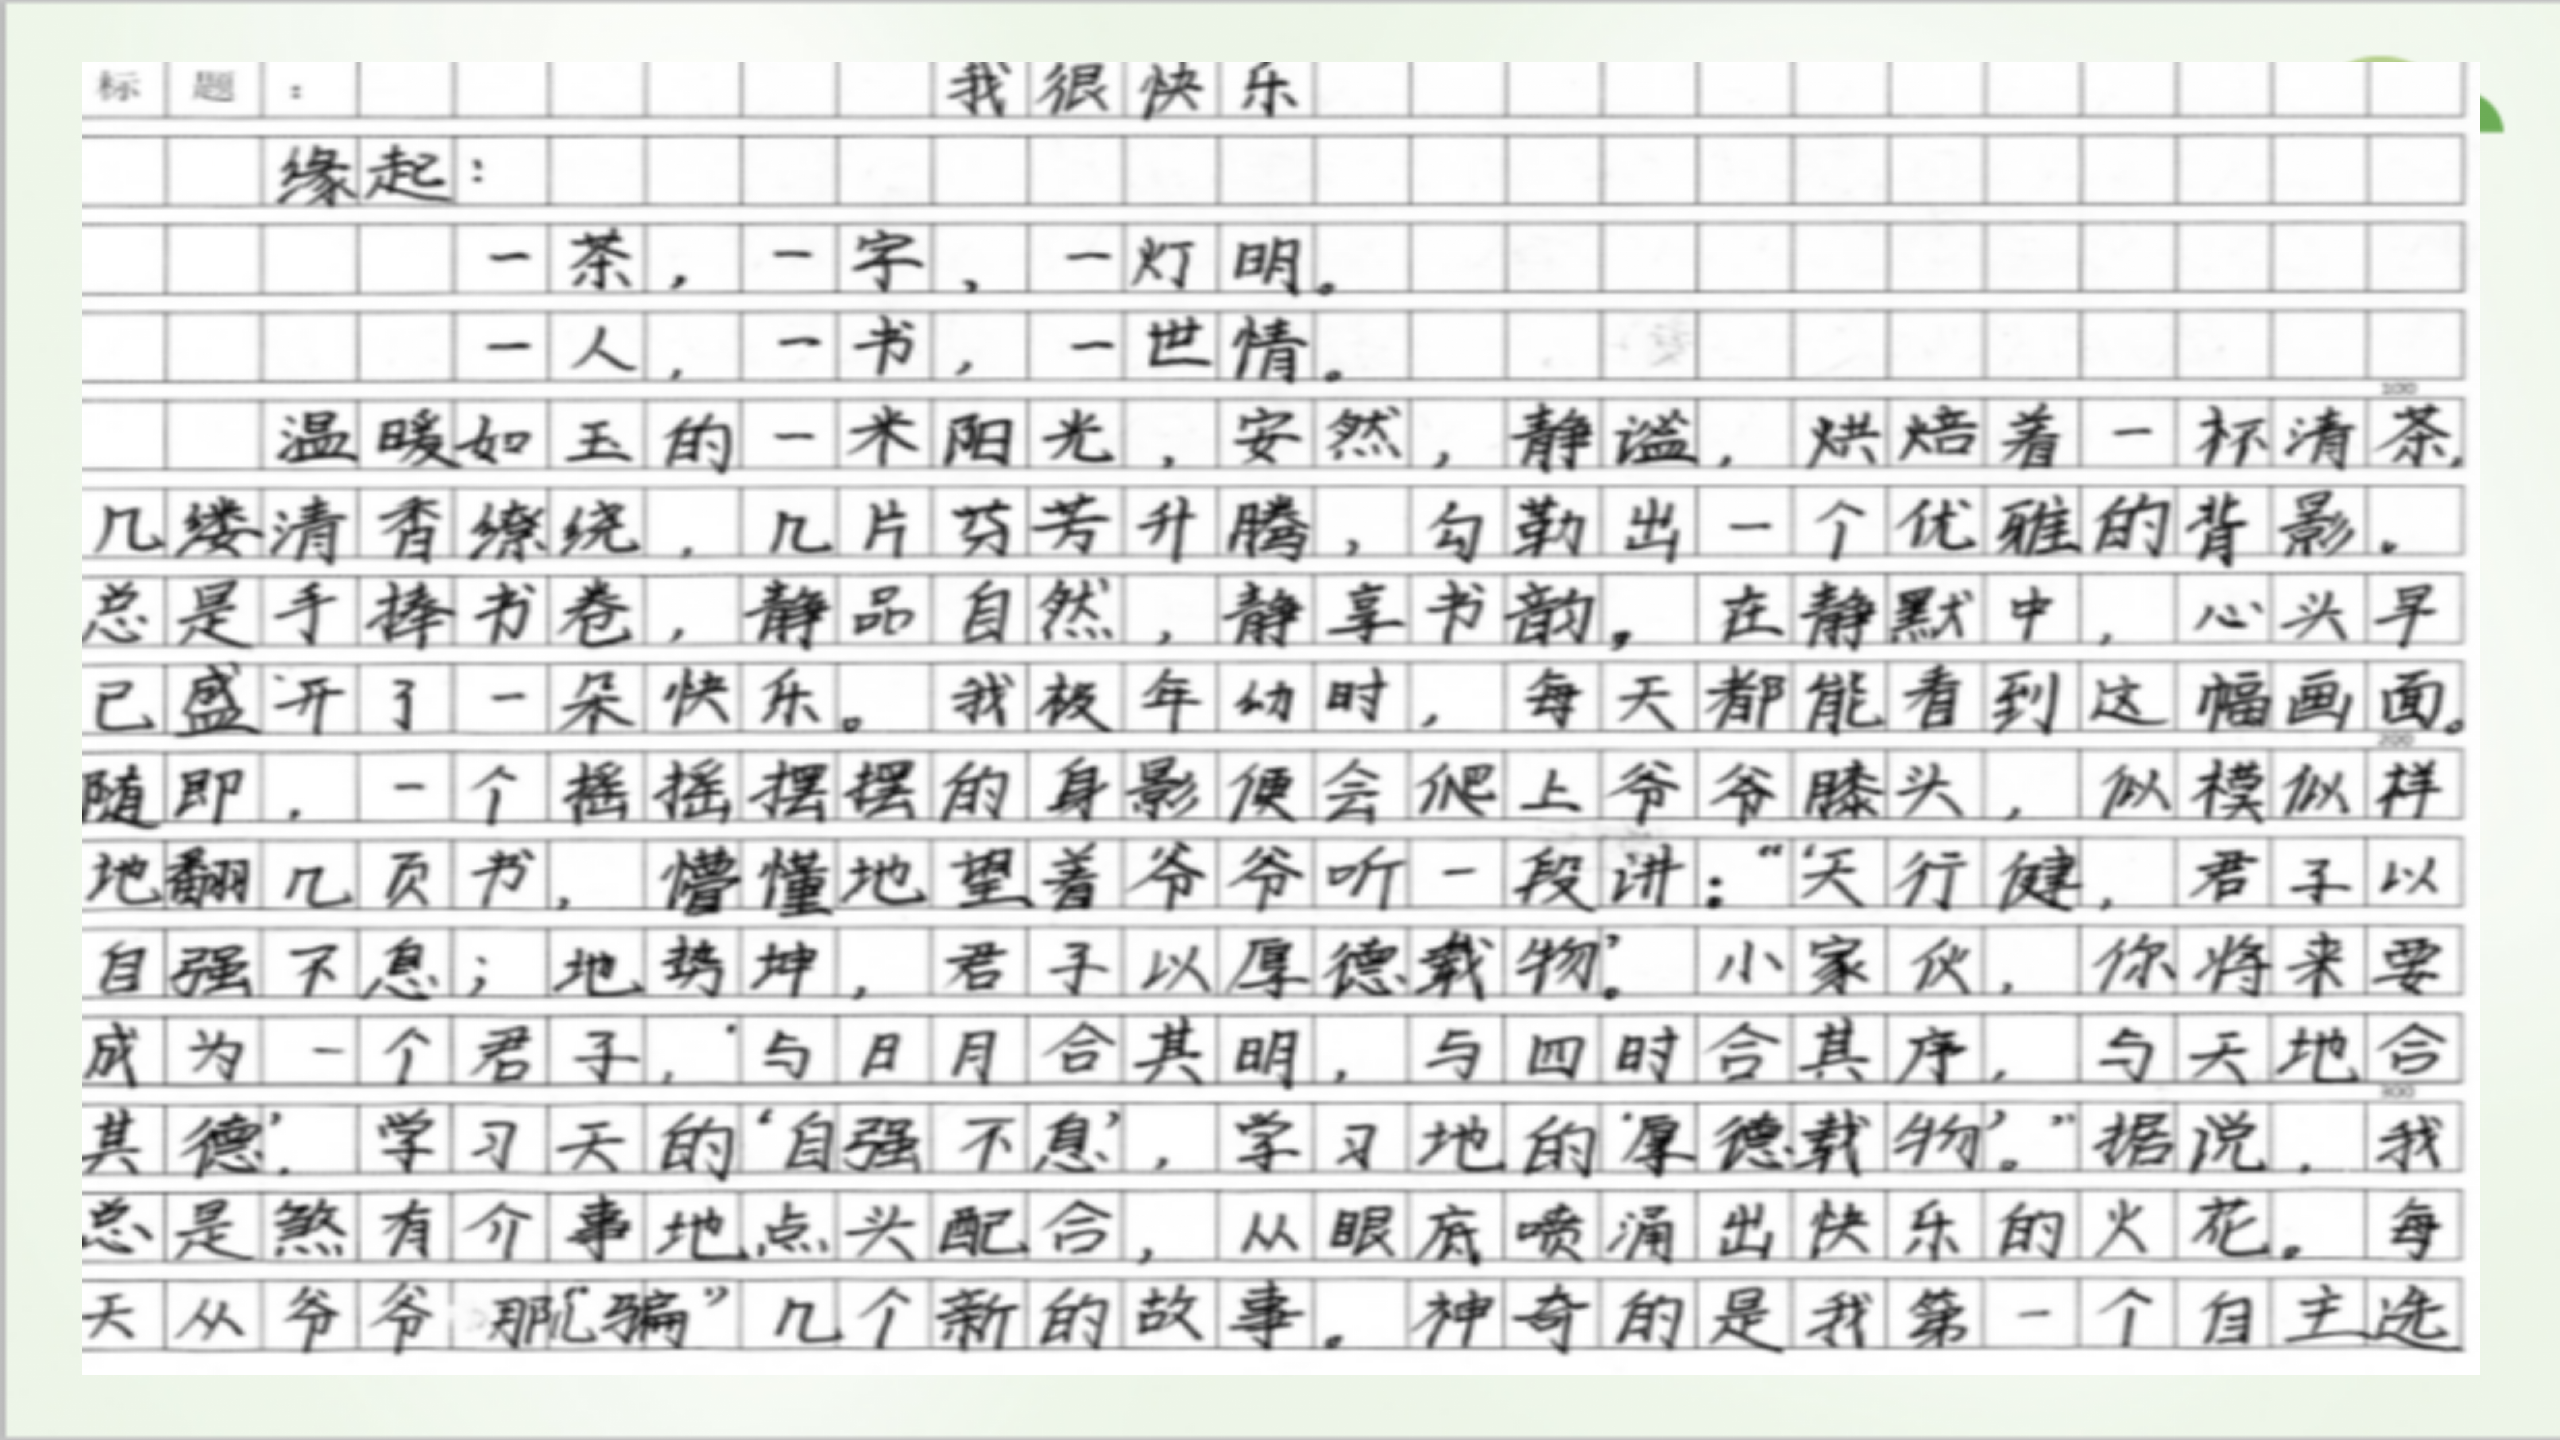 标题: 我很快乐
缘起:
一茶，一字、一灯明。
一人，一书，一世情。
100
温暖如玉的一米阳光，安然，静谧，烘焙着一杯清茶，
几缕清香缭绕，几片芬芳升腾，勾勒出一个优雅的背影。
总是手捧书卷，静品自然，静享书韵，在静默中，心头早
已盛开了一朵快乐。我极年幼时，每天都能看到这幅画面。
200
随即，一个摇摇摆摆的身影便会爬上爷爷膝头，似模似样
地翻几页书，懵懂地望着爷爷听一段讲：“‘天行健，君子以
自强不息；地势坤，君子以厚德载物’。小家伙，你将来要
成为一个君子，‘与日月合其明，与四时合其序，与天地合
300
其德’，学习天的‘自强不息’，学习地的‘厚德载物’。”据说，我
总是煞有介事地点头配合，从眼底喷涌出快乐的火花。每
天从爷爷那儿“骗”几个新的故事。神奇的是我第一个自主选